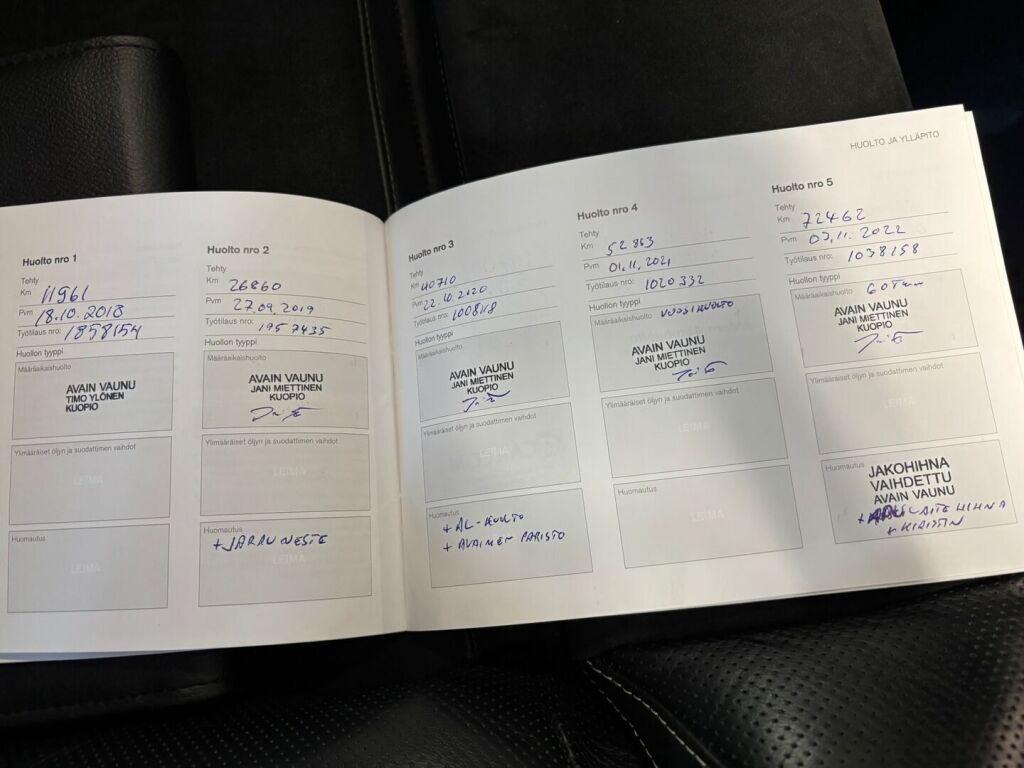 HUOLTO JA YLLÄPITO
Huolto nro 1
Tehty
Km 11961
Pvm 18.10.2018
Työtilaus nro: 1858154
Huollon tyyppi
Määräaikaishuolto
AVAIN VAUNU
TIMO YLÖNEN
KUOPIO
Ylimääräiset öljyn ja suodattimen vaihdot
LEIMA
Huomautus
LEIMA
Huolto nro 2
Tehty
Km 26860
Pvm 27.09.2019
Työtilaus nro: 1957435
Huollon tyyppi
Määräaikaishuolto
AVAIN VAUNU
JANI MIETTINEN
KUOPIO
Ylimääräiset öljyn ja suodattimen vaihdot
LEIMA
Huomautus
+ JARRUNESTE
LEIMA
Huolto nro 3
Tehty
Km 40710
Pvm 22.10.2020
Työtilaus nro: 1008118
Huollon tyyppi
Määräaikaishuolto
AVAIN VAUNU
JANI MIETTINEN
KUOPIO
Ylimääräiset öljyn ja suodattimen vaihdot
LEIMA
Huomautus
+ AC-HUOLTO
+ AVAIMEN PARISTO
Huolto nro 4
Tehty
Km 52863
Pvm 01.11.2021
Työtilaus nro: 1020332
Huollon tyyppi
Määräaikaishuolto VUOSIHUOLTO
AVAIN VAUNU
JANI MIETTINEN
KUOPIO
Ylimääräiset öljyn ja suodattimen vaihdot
LEIMA
Huomautus
LEIMA
Huolto nro 5
Tehty
Km 72462
Pvm 03.11.2022
Työtilaus nro: 1038158
Huollon tyyppi
Määräaikaishuolto
AVAIN VAUNU
JANI MIETTINEN
KUOPIO
Ylimääräiset öljyn ja suodattimen vaihdot
LEIMA
Huomautus
JAKOHIHNA
VAIHDETTU
AVAIN VAUNU
+ LAITEHIHNA
+ KIRISTIN